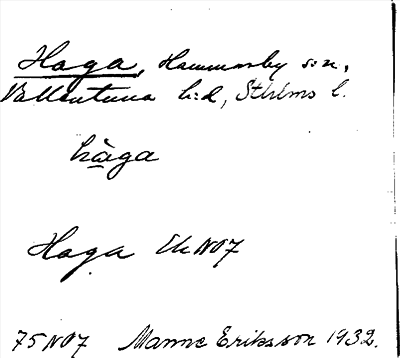 Haga, Hammarby s:n,
Vallentuna h:d, Sthlms l.
hàga
Haga Ek N07
75 N07 Manne Eriksson 1932.